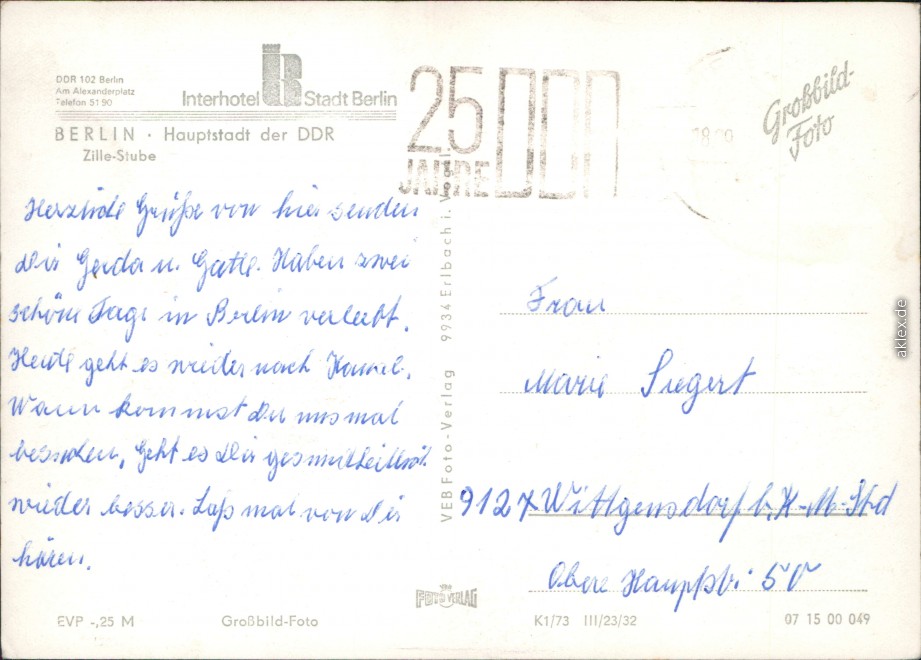 DDR 102 Berlin
Am Alexanderplatz
Telefon 51 90
Interhotel Stadt Berlin
BERLIN · Hauptstadt der DDR
Zille-Stube
25 JAHRE DDR
18
Großbild-
Foto
Herzliche Grüße von hier senden
Dir Gerda u. Gatte. Haben zwei
schöne Tage in Berlin verlebt.
Heute geht es wieder nach
Wann kommst Du uns mal
besuchen, Geht es Dir gesundheitlich
wieder besser. Laß mal von Dir
hören.
VEB Foto-Verlag 9934 Erlbach i.
Frau
Marie Siegert
9127 Wittgensdorf b. K-M-Std
Obere Hauptstr. 50
FOTO VERLAG
EVP -,25 M
Großbild-Foto
K1/73 III/23/32
07 15 00 049
aklex.de